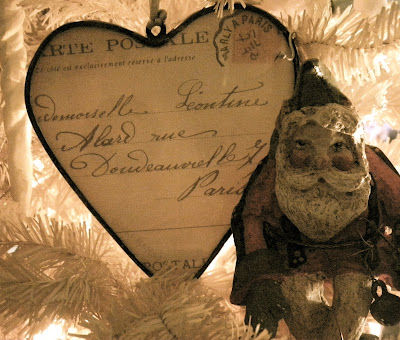 ARTE POSTALE
Ce côté est exclusivement réservé à l'adresse
PARIS
demoiselle Léontine
Alard rue
Doudeauville 7
Paris
POSTALE